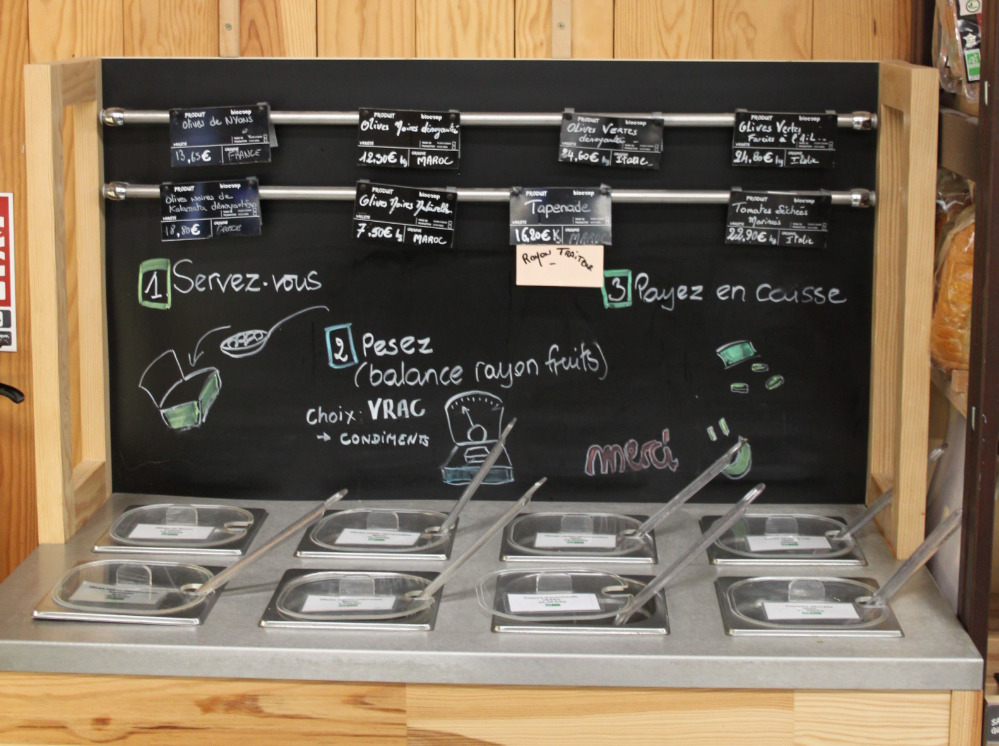 PRODUIT biocoop
Olives de NYONS
VARIÉTÉ
13,65€ FRANCE
PRODUIT biocoop
Olives Noires dénoyautées
12,90€ kg MAROC
PRODUIT biocoop
Olives Vertes
dénoyautées
24,60€ kg Italie
PRODUIT biocoop
Olives Vertes
Farcies à l'Ail
24,80€ kg Italie
PRODUIT biocoop
Olives noires de
Kalamata dénoyautées
VARIÉTÉ
18,80€ GRECE
PRODUIT biocoop
Olives Noires Naturelles
VARIÉTÉ
7,50€ kg MAROC
PRODUIT biocoop
Tapenade
VARIÉTÉ
16,20€ K MAROC
Rayon TRAITEUR
PRODUIT biocoop
Tomates Séchées
Marinées
VARIÉTÉ
22,90€ kg Italie
1 Servez-vous
2 Pesez
(balance rayon fruits)
Choix: VRAC
→ CONDIMENTS
3 Payez en caisse
merci